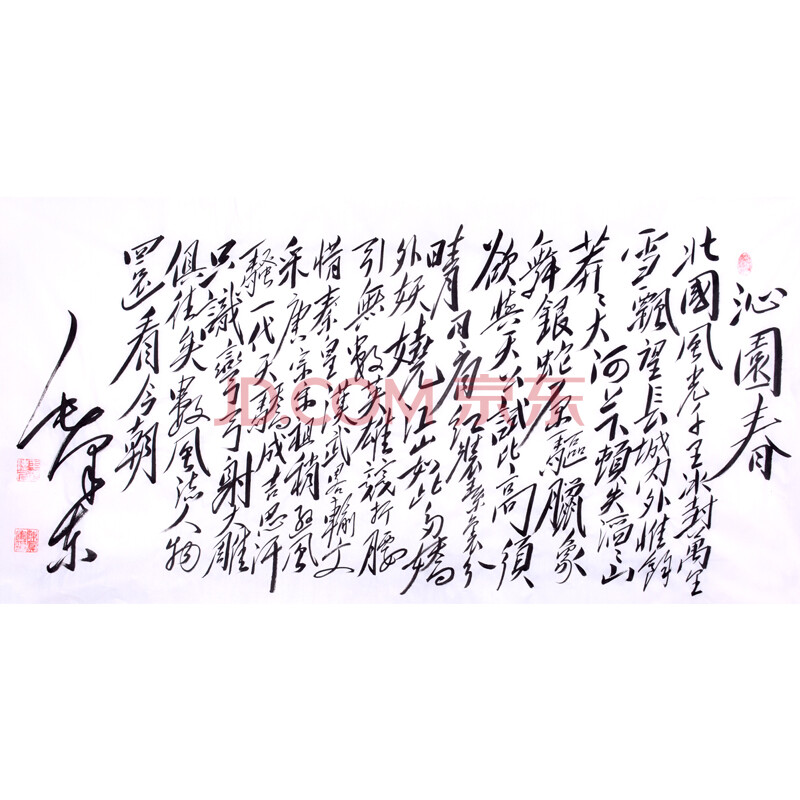 沁園春
北國風光千里冰封萬里
雪飄望長城內外惟餘
莽〻大河上下頓失滔〻山
舞銀蛇原驅臘象
欲與天公試比高須
晴日看紅裝素裹分
外妖嬈江山如此多嬌
引無數英雄競折腰
惜秦皇漢武畧輸文
采唐宗宋祖稍遜風
騷一代天驕成吉思汗
只識彎弓射大雕
俱往矣數風流人物
還看今朝
毛澤东
JD.COM 京东